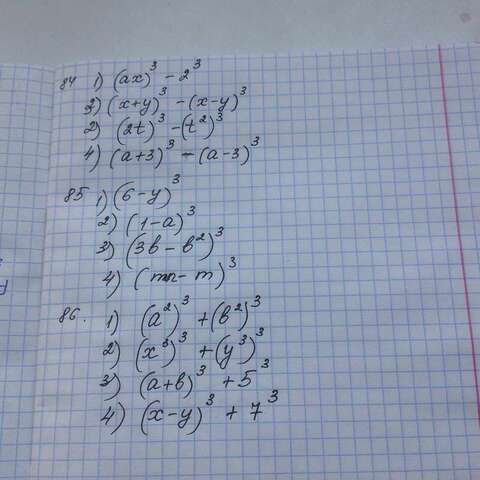 84 1) (ax)³ - 2³
3) (x+y)³ - (x-y)³
2) (2t)³ - (t²)³
4) (a+3)³ - (a-3)³
85 1) (6-y)³
2) (1-a)³
3) (3в - в²)³
4) (mn - m)³
86. 1) (a²)³ + (в²)³
2) (x³)³ + (y³)³
3) (a+в)³ + 5³
4) (x-y)³ + 7³